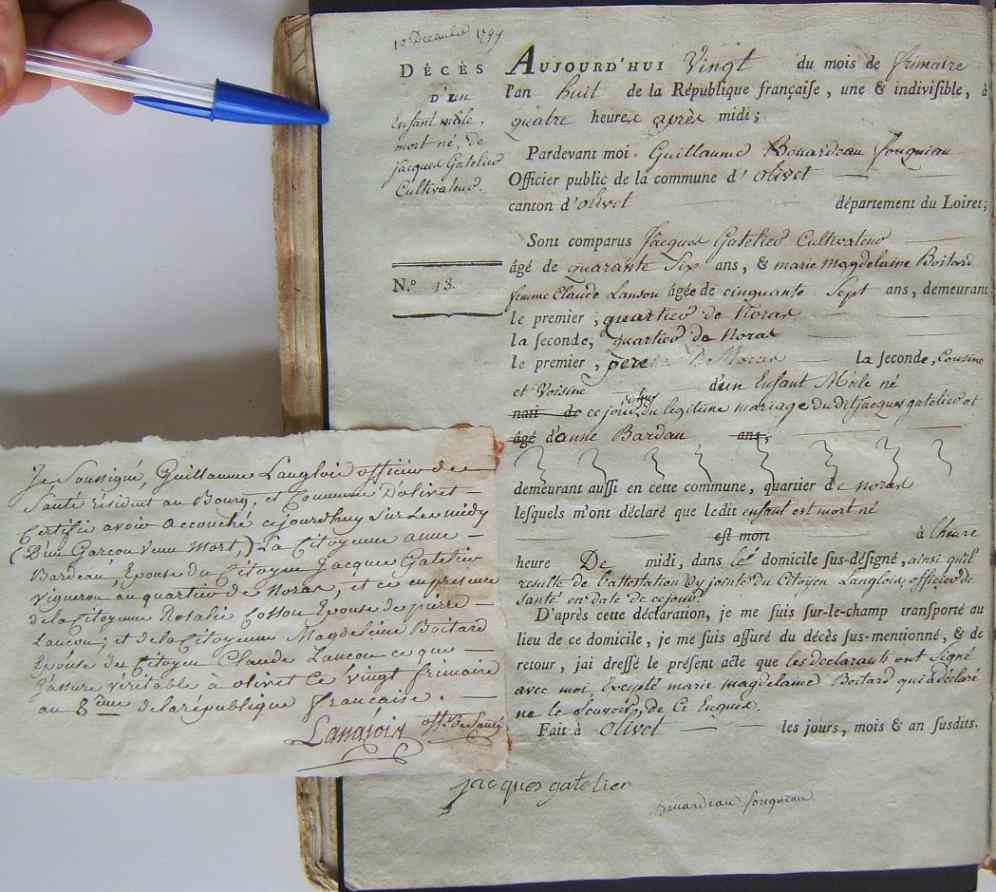 10 Décembre 1799
DÉCÈS
D'un
Enfant mâle,
mort né, de
Jacques Gatelier
Cultivateur.
N.º 18.
AUJOURD'HUI Vingt du mois de frimaire
l'an huit de la République françaiſe, une & indiviſible, à
quatre heures après midi;
Pardevant moi Guillaume Bouardeau Jouqueau
Officier public de la commune d'olivet
canton d'olivet département du Loiret;
Sont comparus Jacques Gatelier Cultivateur
âgé de quarante Six ans, & marie Magdelaine Boitard
femme Claude Lanson âgée de cinquante Sept ans, demeurant
le premier, quartier de Noras
la ſeconde, quartier de Noras
le premier, pere la ſeconde, Cousine
et Voisine d'un Enfant Mâle né
natif de ce jour du légitime mariage du dit jacques gatelier et
âgé d'anne Bardau ans;
demeurant auſſi en cette commune, quartier de noras
leſquels m'ont déclaré que ledit enfant est mort né
est mort à l'heure
heure De midi, dans le domicile ſus-déſigné, ainsi qu'il
résulte de l'attestation cy jointe du Citoyen Langlois, officier de
Santé en date de cejour
D'après cette déclaration, je me ſuis ſur-le-champ tranſporté au
lieu de ce domicile, je me ſuis aſſuré du décès ſus-mentionné, & de
retour, jai dreſſé le préſent acte que les declarants ont Signé
avec moi, Excepté marie magdelaine Boitard qui a déclaré
ne le Scavoir, de Ce Enquise.
Fait à Olivet les jours, mois & an ſuſdits.
jacques gatelier
Bouardeau Jouqueau
Je Soussigné, Guillaume Langlois officier de
Santé résident au Bourg, et Commune D'olivet
Certifie avoir accouché cejourdhuy Sur Les midy
(D'un Garçon venu Mort,) La Citoyenne anne
Bardeau Epouse du Citoyen Jacques Gatelier
vigneron au quartier de Noras, et ce en présence
de la Citoyenne Rosalie Cosson Epouse de pierre
Lancon; et de la Citoyenne Magdeleine Boitard
Epouse du Citoyen Claude Lancon ce que
J'assure véritable à olivet Ce vingt frimaire
au 8ème de la république française.
Langlois off. de Santé